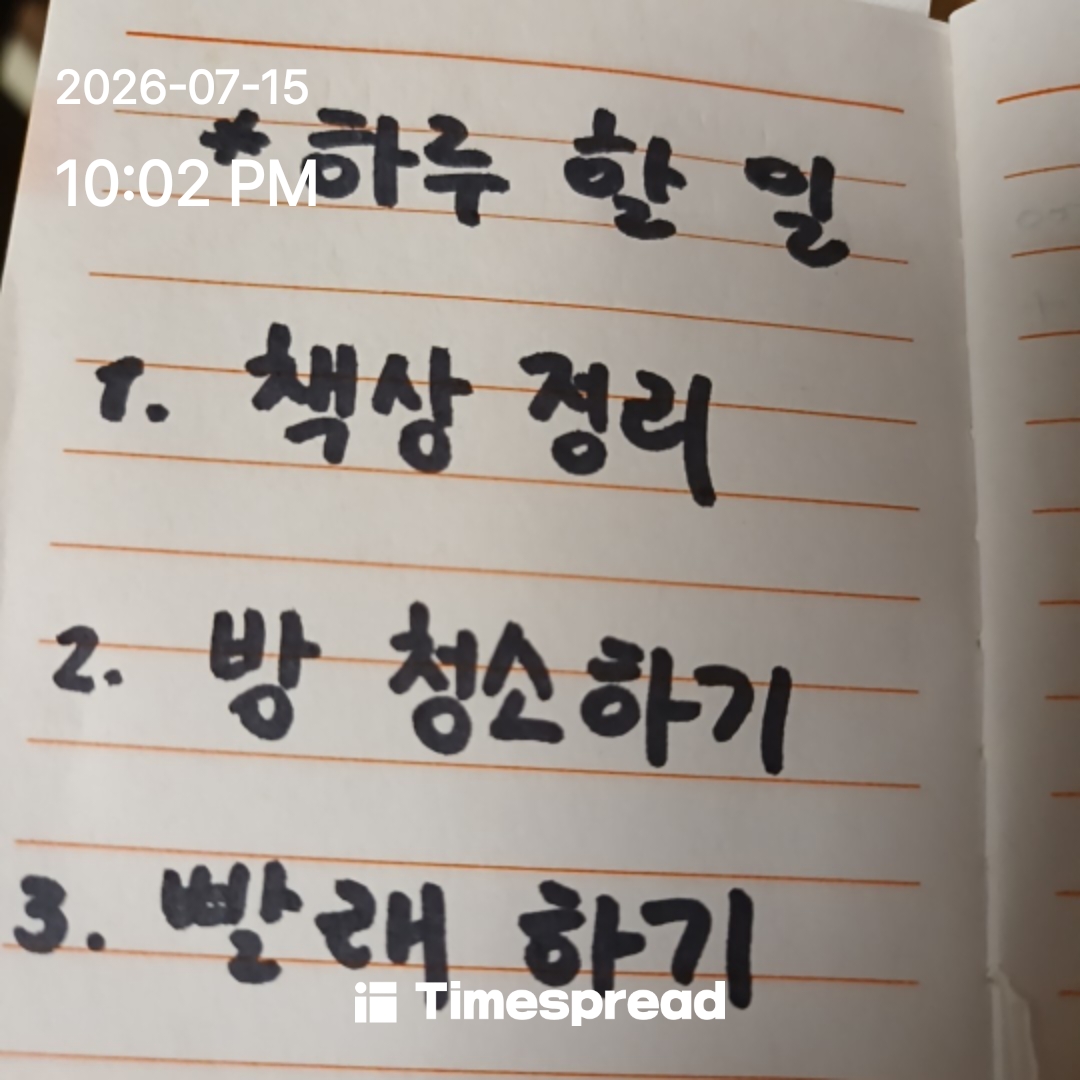 2026-07-15
10:02 PM
*하루 할 일
1. 책상 정리
2. 방 청소하기
3. 빨래 하기
Timespread